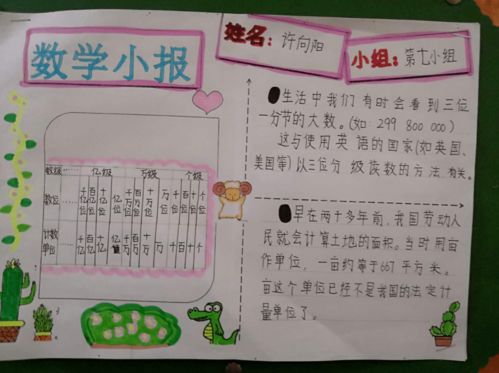 数学小报
姓名：许向阳
小组：第七小组
数级 …… 亿级 万级 个级
数位 …… 千亿位 百亿位 十亿位 亿位 千万位 百万位 十万位 万位 千位 百位 十位 个位
计数单位 …… 千亿 百亿 十亿 亿 千万 百万 十万 万 千 百 十 个
●生活中我们有时会看到三位
一分节的大数。(如: 299 800 000)
这与使用英语的国家(如英国、
美国等)以三位分级读数的方法有关。
●早在两千多年前，我国劳动人
民就会计算土地的面积。当时用亩
作单位，一亩约等于667平方米。
亩这个单位已经不是我国的法定计
量单位了。